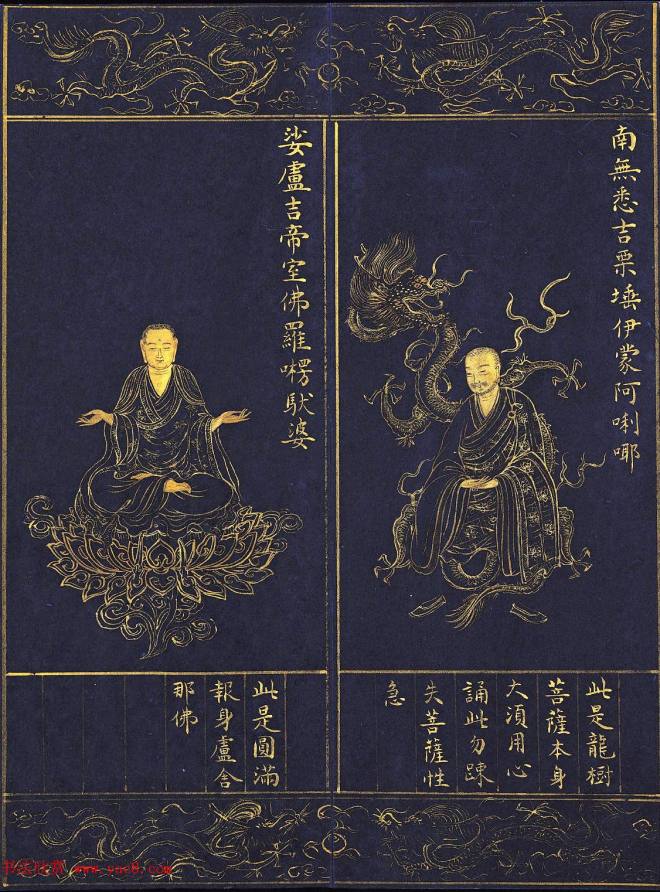 南無悉吉栗埵伊蒙阿唎耶
此是龍樹
菩薩本身
大須用心
誦此勿踈
失菩薩性
急
娑盧吉帝室佛羅楞馱婆
此是圓滿
報身盧舍
那佛
书法欣赏 www.yac8.com